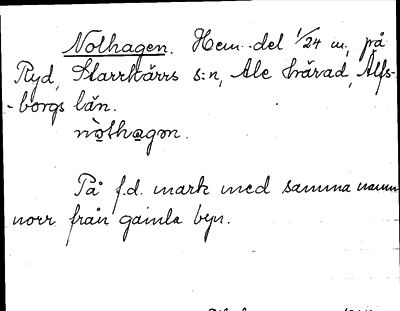 Nolhagen. Hem.del 1/24 m, på
Ryd, Starrkärrs s:n, Ale härad, Älfs-
-borgs län.
På f.d. mark med samma namn
norr från gamla byn.